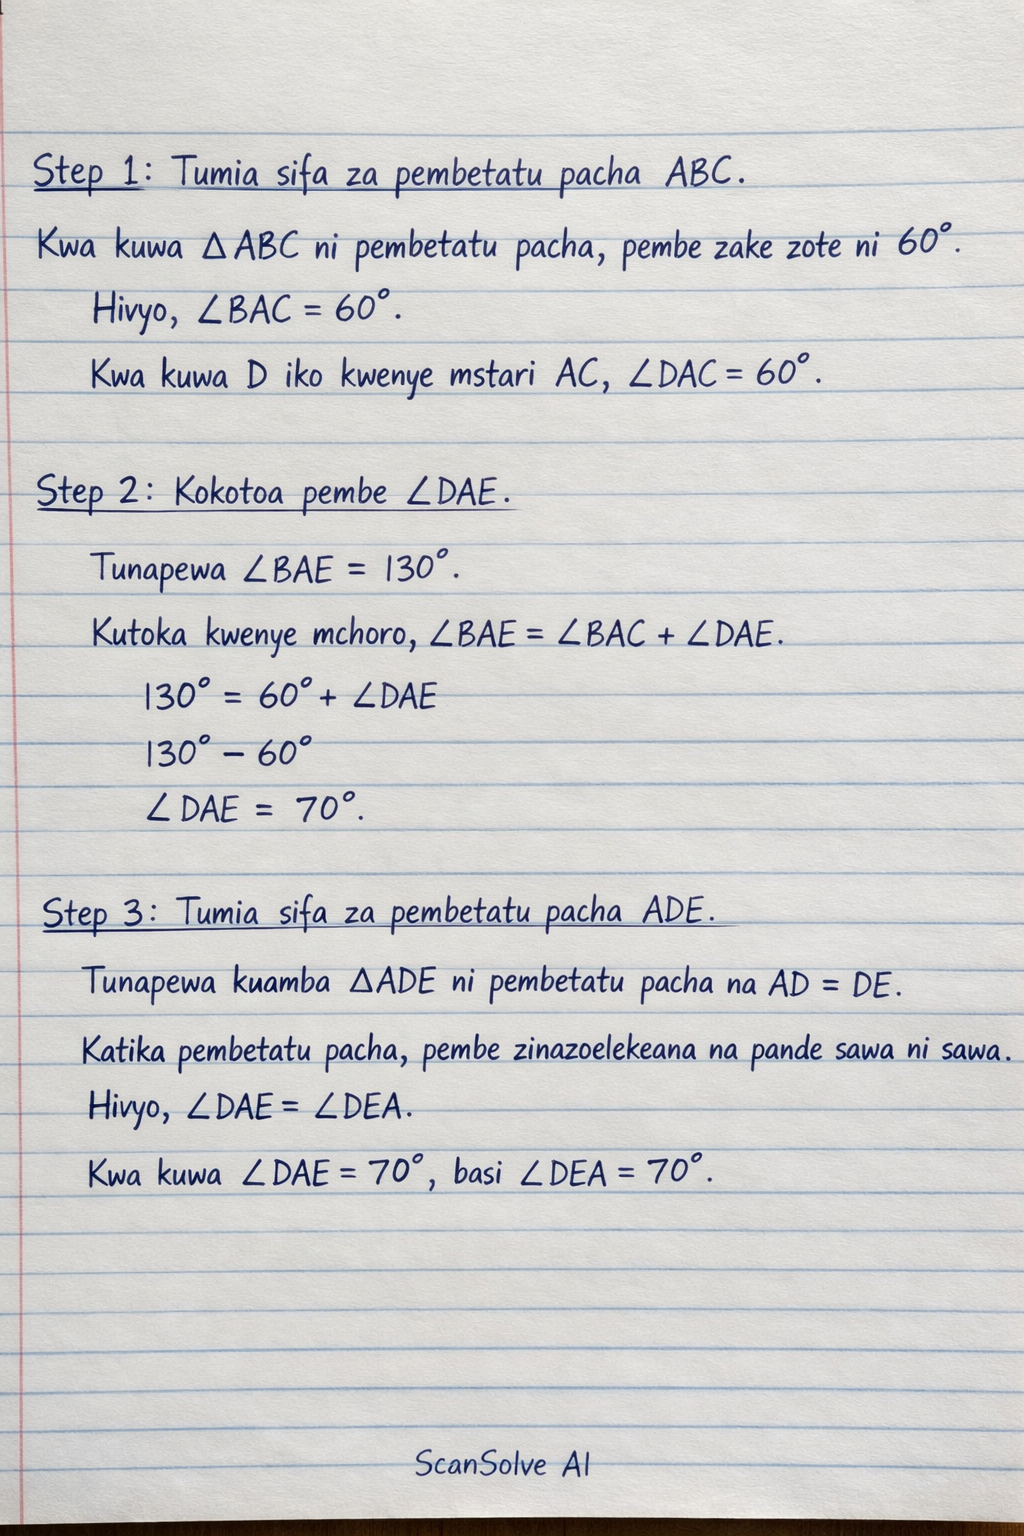 Step 1: Tumia sifa za pembetatu pacha ABC.
Kwa kuwa △ABC ni pembetatu pacha, pembe zake zote ni 60°.
Hivyo, ∠BAC = 60°.
Kwa kuwa D iko kwenye mstari AC, ∠DAC = 60°.
Step 2: Kokotoa pembe ∠DAE.
Tunapewa ∠BAE = 130°.
Kutoka kwenye mchoro, ∠BAE = ∠BAC + ∠DAE.
130° = 60° + ∠DAE
130° – 60°
∠DAE = 70°.
Step 3: Tumia sifa za pembetatu pacha ADE.
Tunapewa kuamba △ADE ni pembetatu pacha na AD = DE.
Katika pembetatu pacha, pembe zinazoelekeana na pande sawa ni sawa.
Hivyo, ∠DAE = ∠DEA.
Kwa kuwa ∠DAE = 70°, basi ∠DEA = 70°.
ScanSolve AI